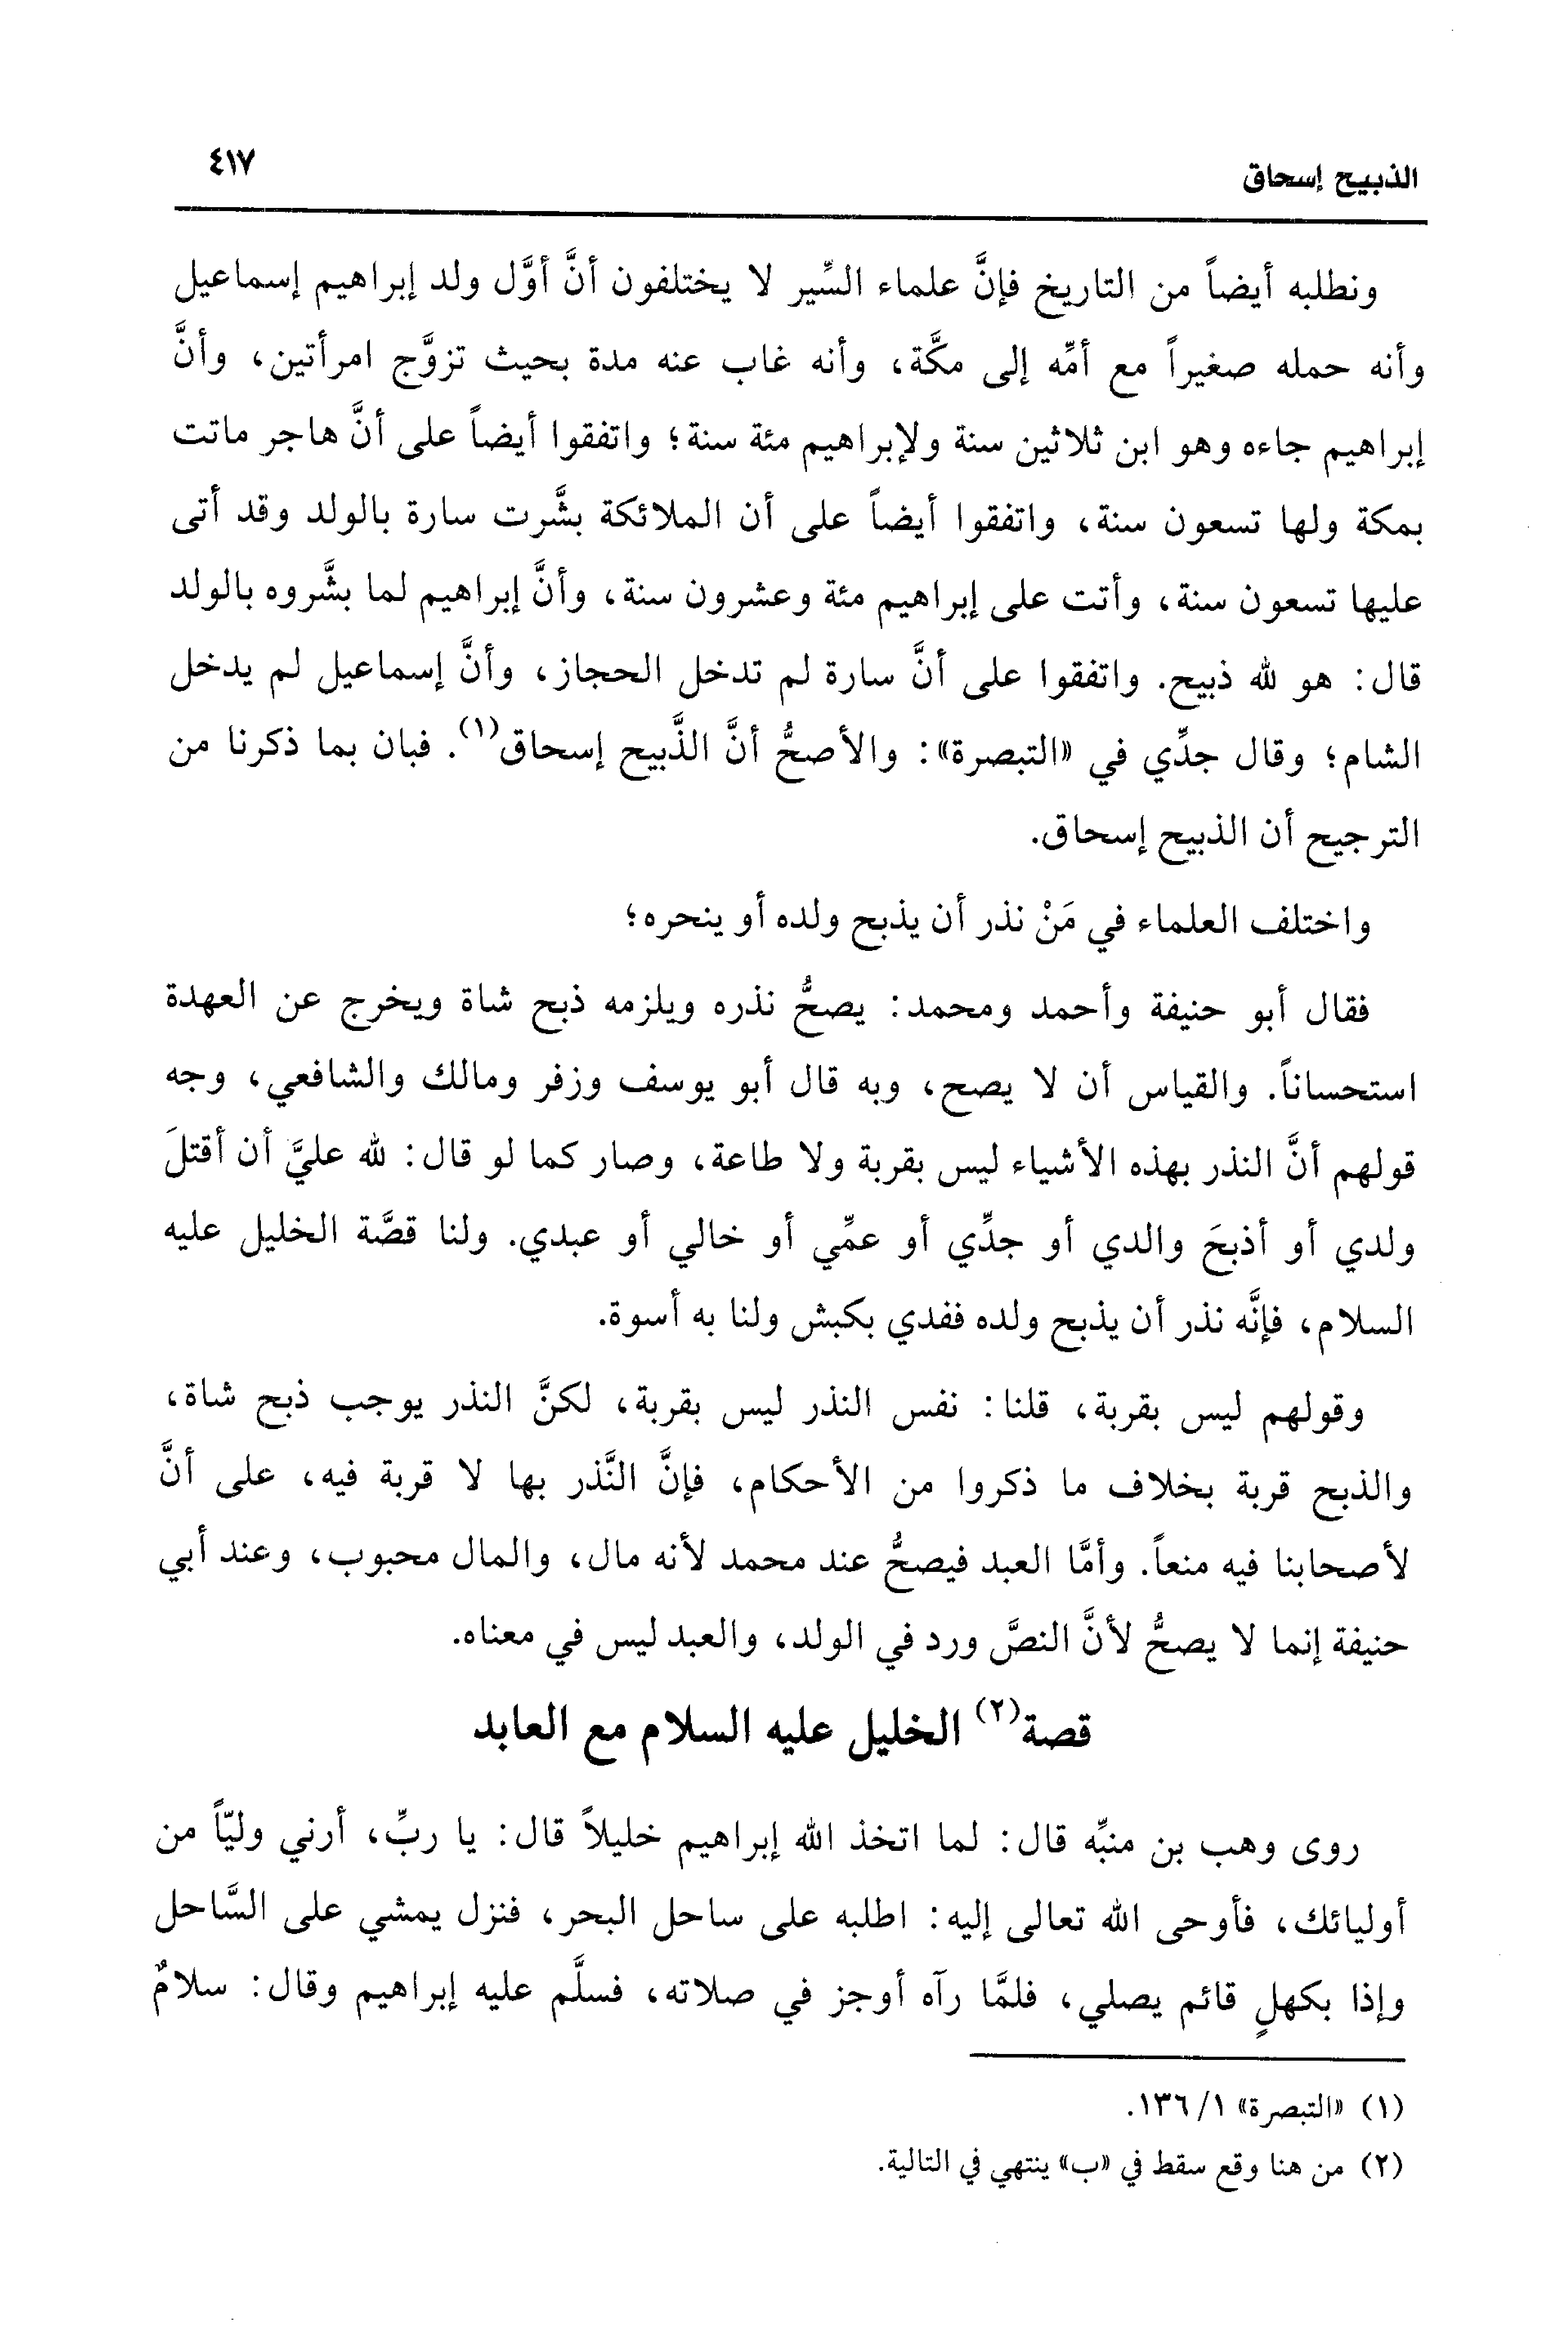 الذبيح إسحاق ٤١٧
ونطلبه أيضاً من التاريخ فإنَّ علماء السِّير لا يختلفون أنَّ أوَّل ولد إبراهيم إسماعيل
وأنه حمله صغيراً مع أمِّه إلى مكَّة، وأنه غاب عنه مدة بحيث تزوَّج امرأتين، وأنَّ
إبراهيم جاءه وهو ابن ثلاثين سنة ولإبراهيم مئة سنة؛ واتفقوا أيضاً على أنَّ هاجر ماتت
بمكة ولها تسعون سنة، واتفقوا أيضاً على أن الملائكة بشَّرت سارة بالولد وقد أتى
عليها تسعون سنة، وأتت على إبراهيم مئة وعشرون سنة، وأنَّ إبراهيم لما بشَّروه بالولد
قال: هو لله ذبيح. واتفقوا على أنَّ سارة لم تدخل الحجاز، وأنَّ إسماعيل لم يدخل
الشام؛ وقال جدِّي في «التبصرة»: والأصحُّ أنَّ الذَّبيح إسحاق(١). فبان بما ذكرنا من
الترجيح أن الذبيح إسحاق.
واختلف العلماء في مَنْ نذر أن يذبح ولده أو ينحره؛
فقال أبو حنيفة وأحمد ومحمد: يصحُّ نذره ويلزمه ذبح شاة ويخرج عن العهدة
استحساناً. والقياس أن لا يصح، وبه قال أبو يوسف وزفر ومالك والشافعي، وجه
قولهم أنَّ النذر بهذه الأشياء ليس بقربة ولا طاعة، وصار كما لو قال: لله عليَّ أن أقتلَ
ولدي أو أذبحَ والدي أو جدِّي أو عمِّي أو خالي أو عبدي. ولنا قصَّة الخليل عليه
السلام، فإنَّه نذر أن يذبح ولده ففدي بكبش ولنا به أسوة.
وقولهم ليس بقربة، قلنا: نفس النذر ليس بقربة، لكنَّ النذر يوجب ذبح شاة،
والذبح قربة بخلاف ما ذكروا من الأحكام، فإنَّ النَّذر بها لا قربة فيه، على أنَّ
لأصحابنا فيه منعاً. وأمَّا العبد فيصحُّ عند محمد لأنه مال، والمال محبوب، وعند أبي
حنيفة إنما لا يصحُّ لأنَّ النصَّ ورد في الولد، والعبد ليس في معناه.
قصة(٢) الخليل عليه السلام مع العابد
روى وهب بن منبِّه قال: لما اتخذ الله إبراهيم خليلاً قال: يا ربِّ، أرني وليّاً من
أوليائك، فأوحى الله تعالى إليه: اطلبه على ساحل البحر، فنزل يمشي على السَّاحل
وإذا بكهلٍ قائم يصلي، فلمَّا رآه أوجز في صلاته، فسلَّم عليه إبراهيم وقال: سلامٌ
(١) «التبصرة» ١/ ١٣٦.
(٢) من هنا وقع سقط في «ب» ينتهي في التالية.